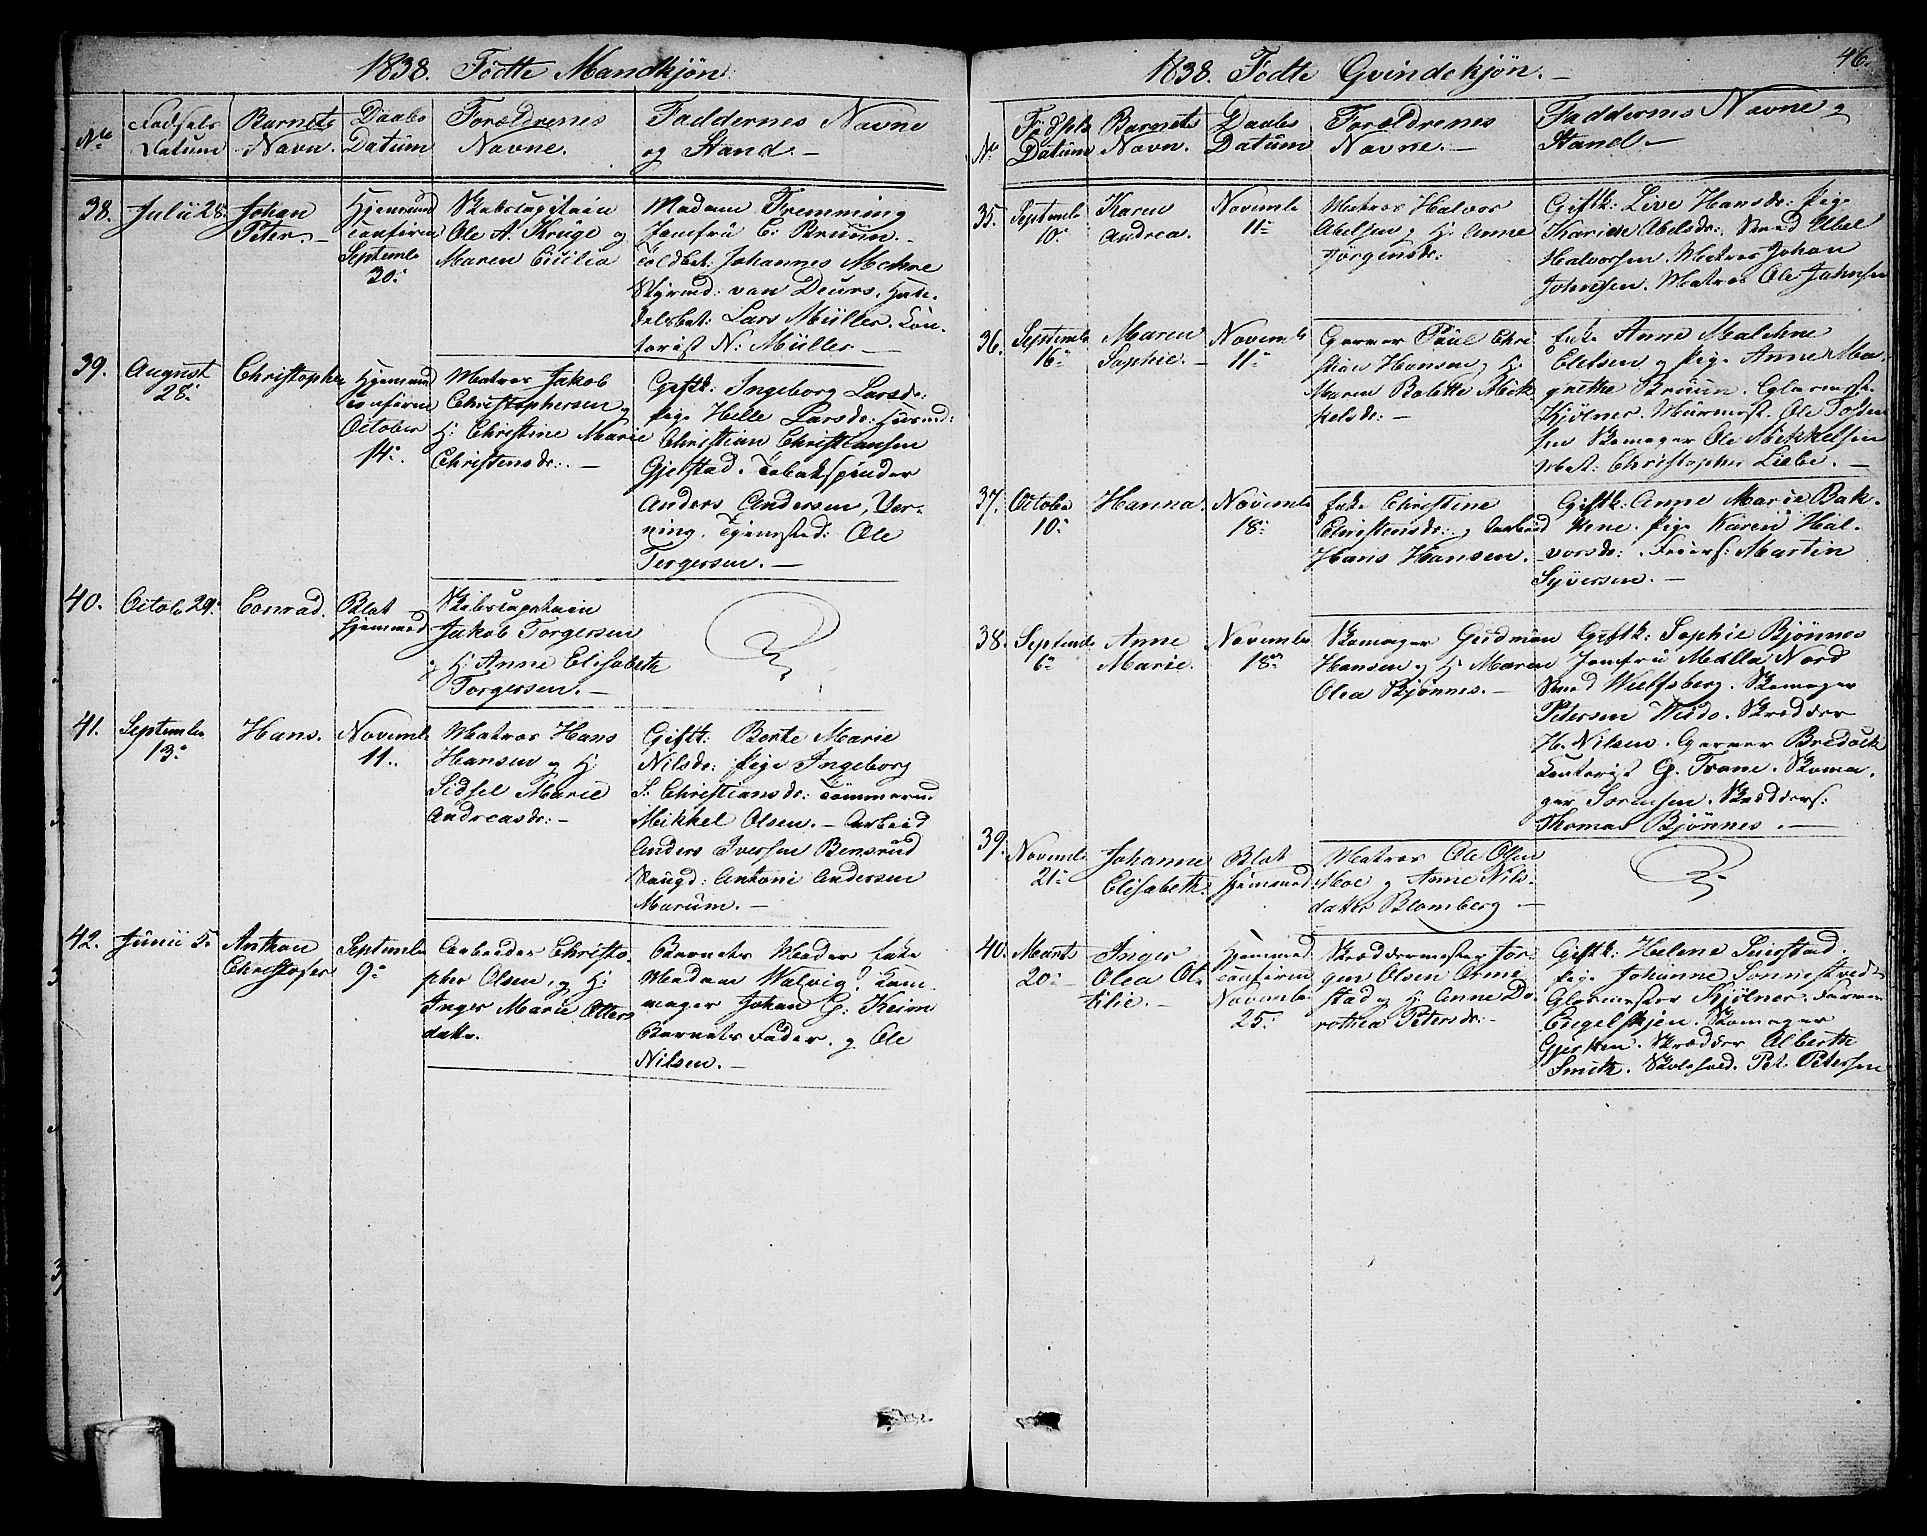 1838. Födte Mandkjön:
No
Födsels Datum
Barnets Navn.
Daabs Datum
Forældrenes Navne.
Faddernes Navne og Stand. —
38.
Julii 28.
Johan
Peter. —
Hjemmed
confirm
Septembr
30.
Skibscapitain
Ole A. Kruge og
Maren Cicilia
Madam Fremming
Jomfrü C. Bruun. —
Toldbet: Johannes
Styrmd: van Deurs. Han-
delsbet: Lars Müller. Con-
torist N. Müller —
39.
August
28.
Christopher
Hjemmed
confirm
October
14.
Matros Jakob
Christophersen og
H: Christine Marie
Christensdr: —
Giftk: Ingeborg Larsdr:
Pige Helle Larsdr:
Christian Christiansen
Gjelstad. Tobakspinder
Anders Andersen, Ver-
ning. Tjenested: Ole
Tergersen. —
40.
Octob 29.
Conrad.
Blot
hjemmed
Skibscapitain
Jakob Torgersen
og H: Anne Elisabeth
Torgersen. —
41.
Septembr
13.
Hans.
Novemb
11.
Matros Hans
Hansen og H:
Sidsel Marie
Andreasdr: —
Giftk: Berte Marie
Nilsdr: Pige Ingeborg
S. Christiansdr: Tömmermd
Mikkel Olsen. — Arbeid
Anders Iversen Bensrud
Ungd: Antoni Andersen
Marum. —
42.
Junii 5.
Anthon
Christofer
Septembr
9.
Arbeider Christo-
pher Olsen, og H:
Inger Marie Otters
datter.
Barnets Moder Enke
Madam Walvig. Kam
mager Johan G. Keim
Barnets Fader. og Ole
Nilsen. —
1838. Födte Qvindekjön. —
46.
No
Födsels Datum
Barnets Navn.
Daabs Datum
Forældrenes Navne. —
Faddernes Navne og Stand. —
35.
Septemb
10.
Karen
Andrea.
Novembr
11.
Matros Halvor
Abelsen og H: Anne
Jörgensdr:
Giftk: Live Hansdr: Pige
Karine Abelsdr: Smed Abel
Halvorsen. Matros Johan
Johnsen. Matros Ole Johnsen
36.
Septembr
16.
Maren
Sophie. —
Novembr
11.
Garver Paul Chri
stian Hansen og H:
Maren Bolette Mik
kelsdr: —
Enke Anne Malehne
Eletsen og Pige Anne Ma-
grethe Bruun. Glarmest.
Kjölner. Murmest. Ole Tosten
sen Skomager Ole Mikkelsen
Mat: Christopher Liebe. —
37.
Octobr
10.
Hanna.
Novembr
18.
Enke Christine
Christensdr: og Arbeid
Hans Hansen. —
Giftk: Anne Marie Bak-
kene. Pige Karen Hal-
vorsdr: Feiers: Martin
Syversen. —
38.
Septembr
6.
Anne
Marie.
Novembr
18.
Skomager Gudmun
Hansen og H: Maren
Olea Bjönnes. —
Giftk: Sophie Bjönnes
Jomfrü Malla Nord
Smed Wulfsberg. Skomager
Petersen Skrædder
H. Nilsen. Garver Bredock
Contorist G. Trane. Skoma-
ger Sörensen. Skrædders:
Thomas Bjönnes. —
39.
Novembr
21.
Johanne
Elisabeth.
Blot
hjemmed
Matros Ole Olsen
Moe og Anne Nils-
datter Blomberg —
40.
Marts
20.
Inger
Olea Ot-
tilie. —
Hjemmed
confirm
Novembr
25.
Skræddermester Jör-
gen Olsen Orme
stad og H: Anne Do-
rothea Petersdr: —
Giftk: Helene
Pige Johanne Sonnestvedt
Glarmester Kjölner. Farver
Engelskjen. Skomager
Gjersen. Skrædder Alberth
Smith. Skolehold. Pet. Petersen